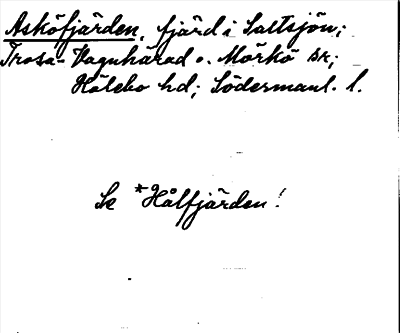 Asköfjärden, fjärd i Saltsjön;
Trosa-Vagnhärad o. Mörkö sn;
Hölebo hd; Södermanl. l.
Se *Hålfjärden!